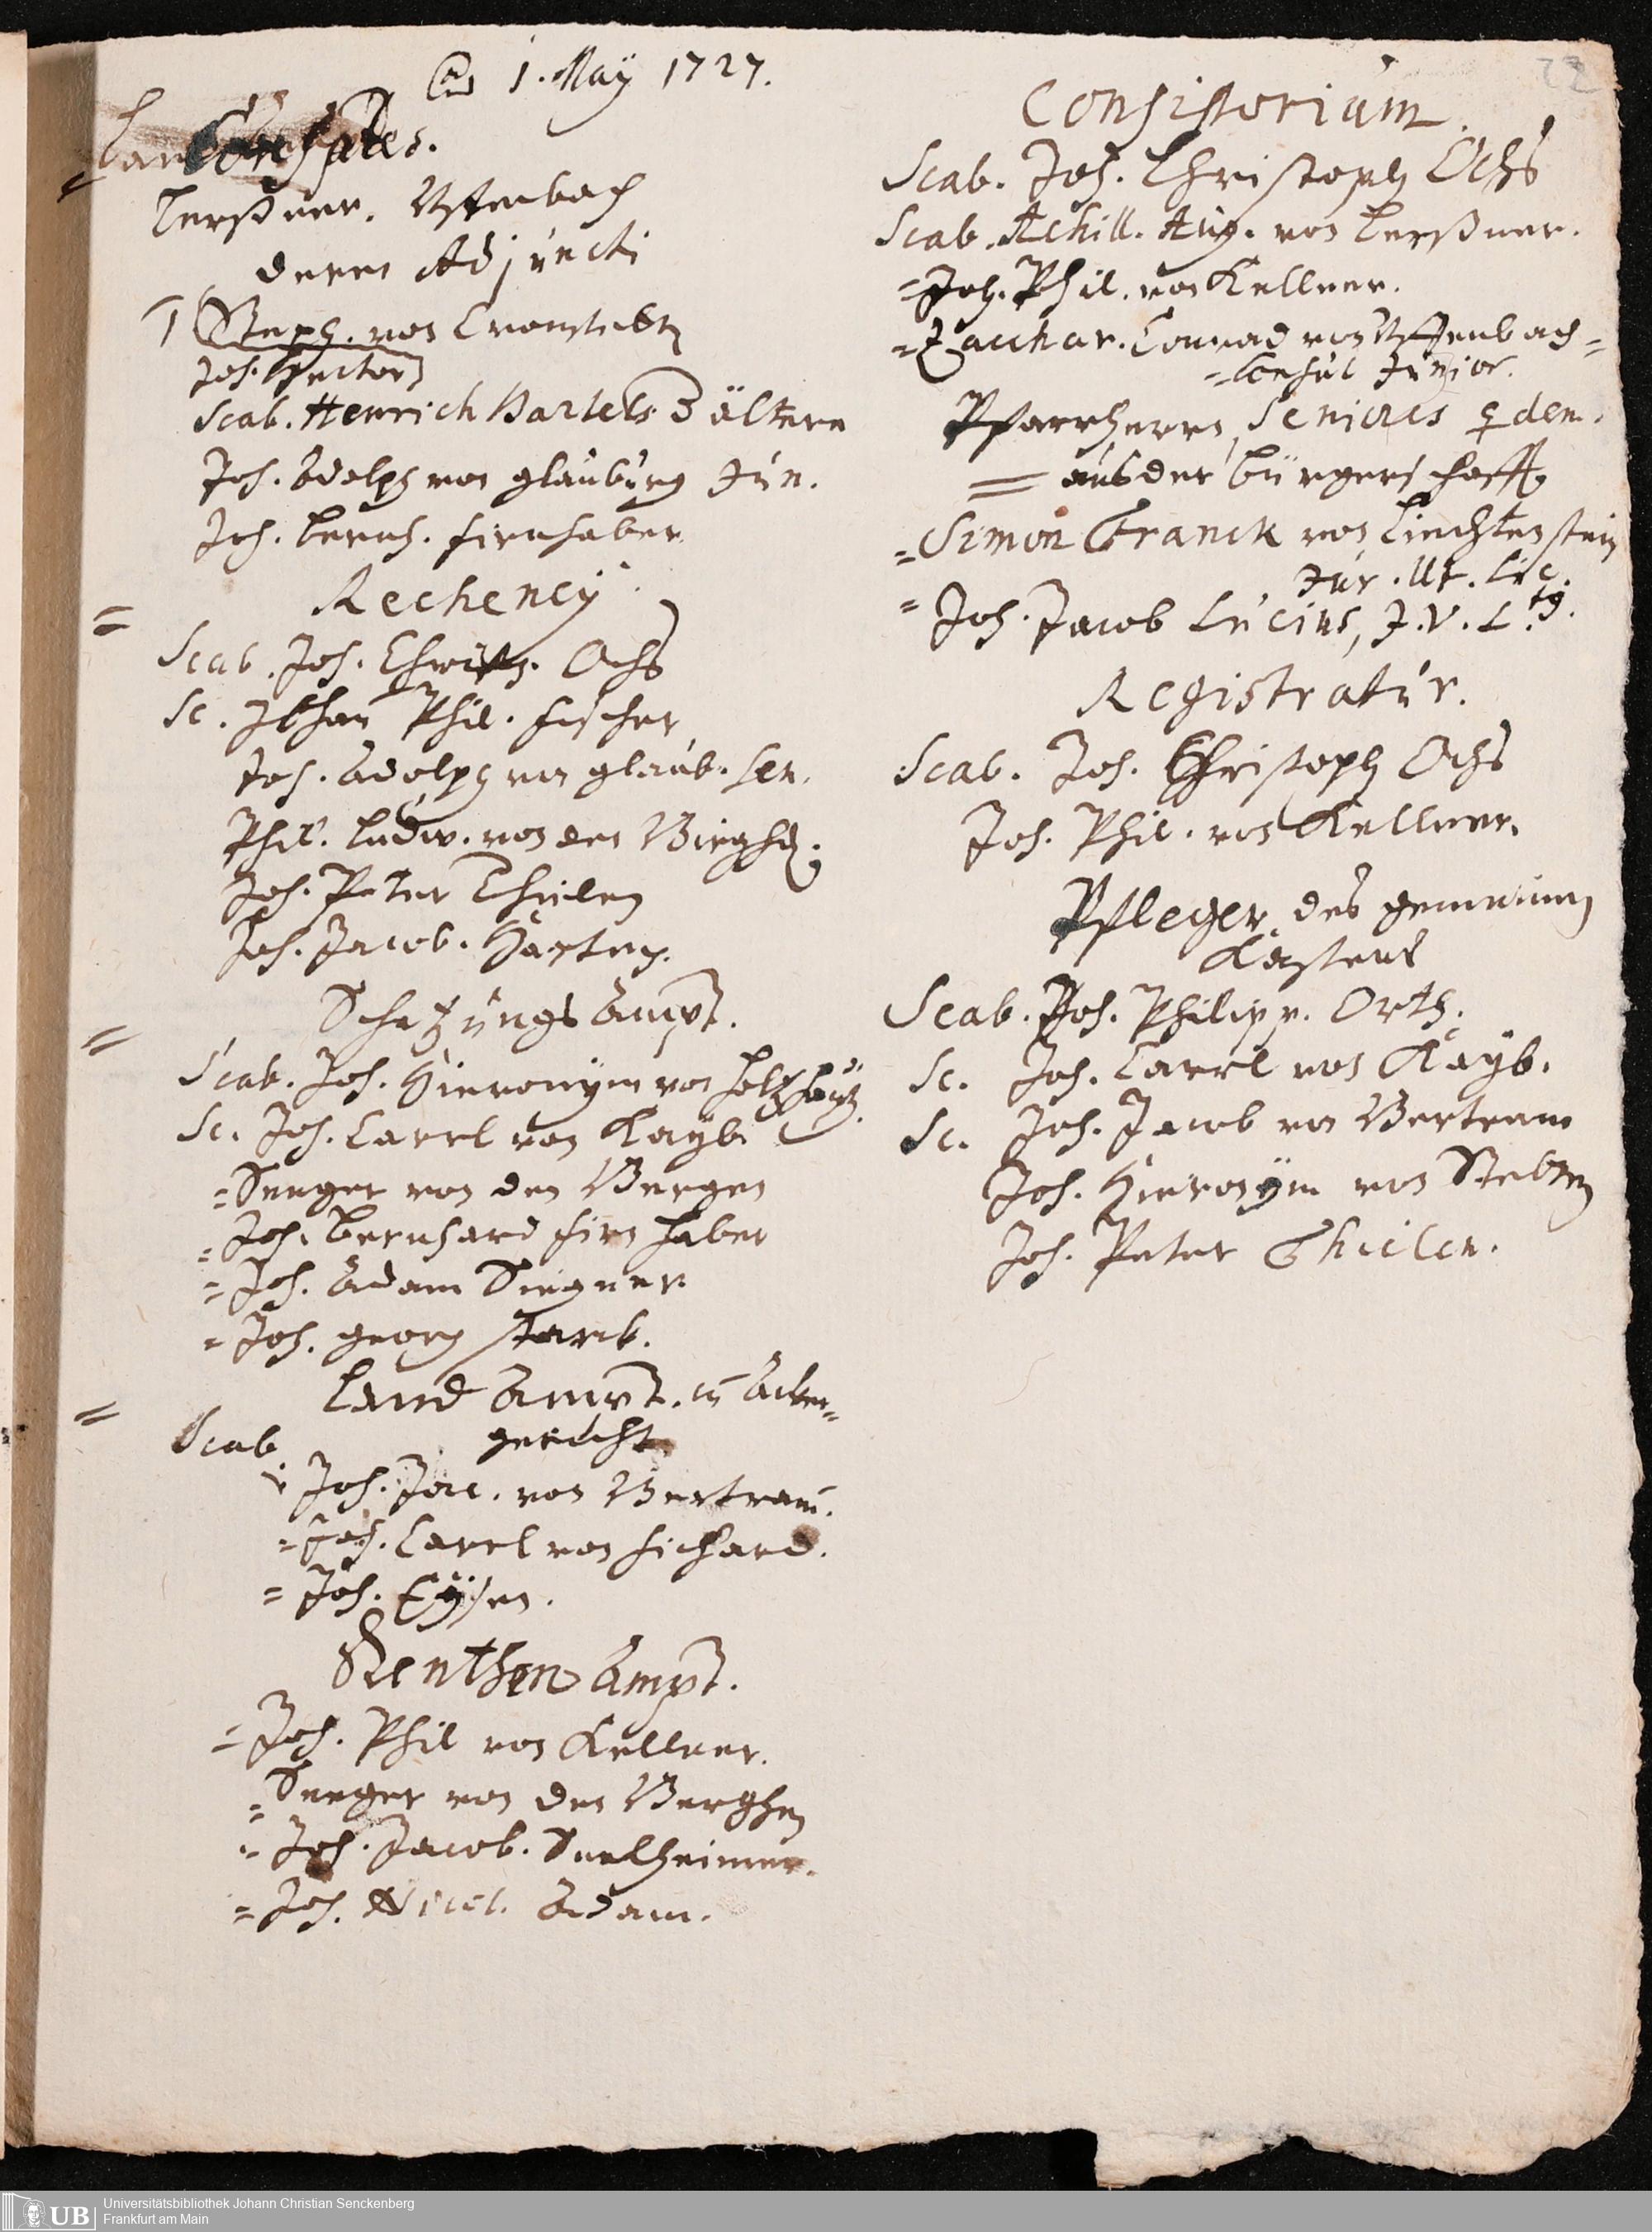 En 1. Maÿ 1727.
Consules.
Lerßner. Uffenbach
deren Adjuncti
Steph. von Cronstett
Joh. Hector
Scab. Henrich Bartels 3 ältere
Joh. Adolph von Glauburg Jun.
Joh. Bernh. Firnhaber
Recheneÿ.
Scab. Joh. Christ. Ochs
Sc. Johan Phil. Fischer
Joh. Adolph von Glaub. Sen.
Phil. Ludw. von den Birghd.
Joh. Peter Thielen
Joh. Jacob. Härten.
Schatzungs Ampt.
Scab. Joh. Hieronÿm von Holtzhauß.
Sc. Joh. Carel von Kaÿb.
= Seeger von den Bergen
= Joh. Bernhard Firnhaber
= Joh. Adam Siegner
= Joh. Georg Starck.
Land Ampt. u Acker=
gericht
Scab
= Joh. Jac. von Bertram.
= Joh. Carel von Fichard.
= Joh. Eÿsen.
Renthen Ampt.
= Joh. Phil von Kellner.
= Seeger von den Berghen
= Joh. Jacob. Seelheimer.
= Joh. Nicol. Adam.
22
Consistorium.
Scab. Joh. Christoph Ochs
Scab. Achill. Aug. von Lerßner.
= Joh. Phil. von Kellner.
= Zacchar. Conrad von Uffenbach=
= Consul Junior.
Pfarrherrn, Seniores q dem.
= aus der Bürgerschafft
= Simon Franck von Liechtenstein
Jur. Ut. Lic.
= Joh. Jacob Lucius, J.V.L.tg.
Registratur.
Scab. Joh. Christoph Ochs
Joh. Phil. von Kellner.
Pfleger des gemeinen
Kastens
Scab. Joh. Philipp. Orth.
Sc. Joh. Carel von Kaÿb.
Sc. Joh. Jacob von Bertram
Joh. Hieronÿm von Stetten
Joh. Peter Thielen.
UB
Universitätsbibliothek Johann Christian Senckenberg
Frankfurt am Main